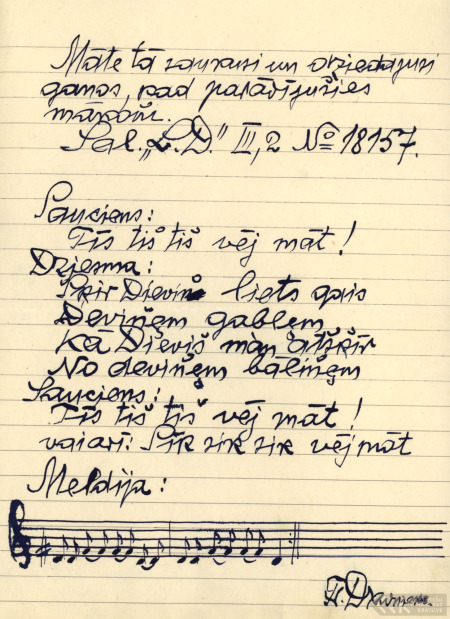 Māte tā saukusi un dziedājusi
ganos, kad parādījušies
mākoņi.
Sal. „L.D." III, 2 № 18157.
Sauciens:
Tīs tiš tiš vēj māt!
Dziesma:
Šķir Dieviņ liets gais
Deviņem gablem
Kā Dieviš man atšķīr
No deviņem bāliņem
Sauciens:
Tīs tiš tiš vēj māt!
vai arī: Sik zik zik vēj māt
Meldija: